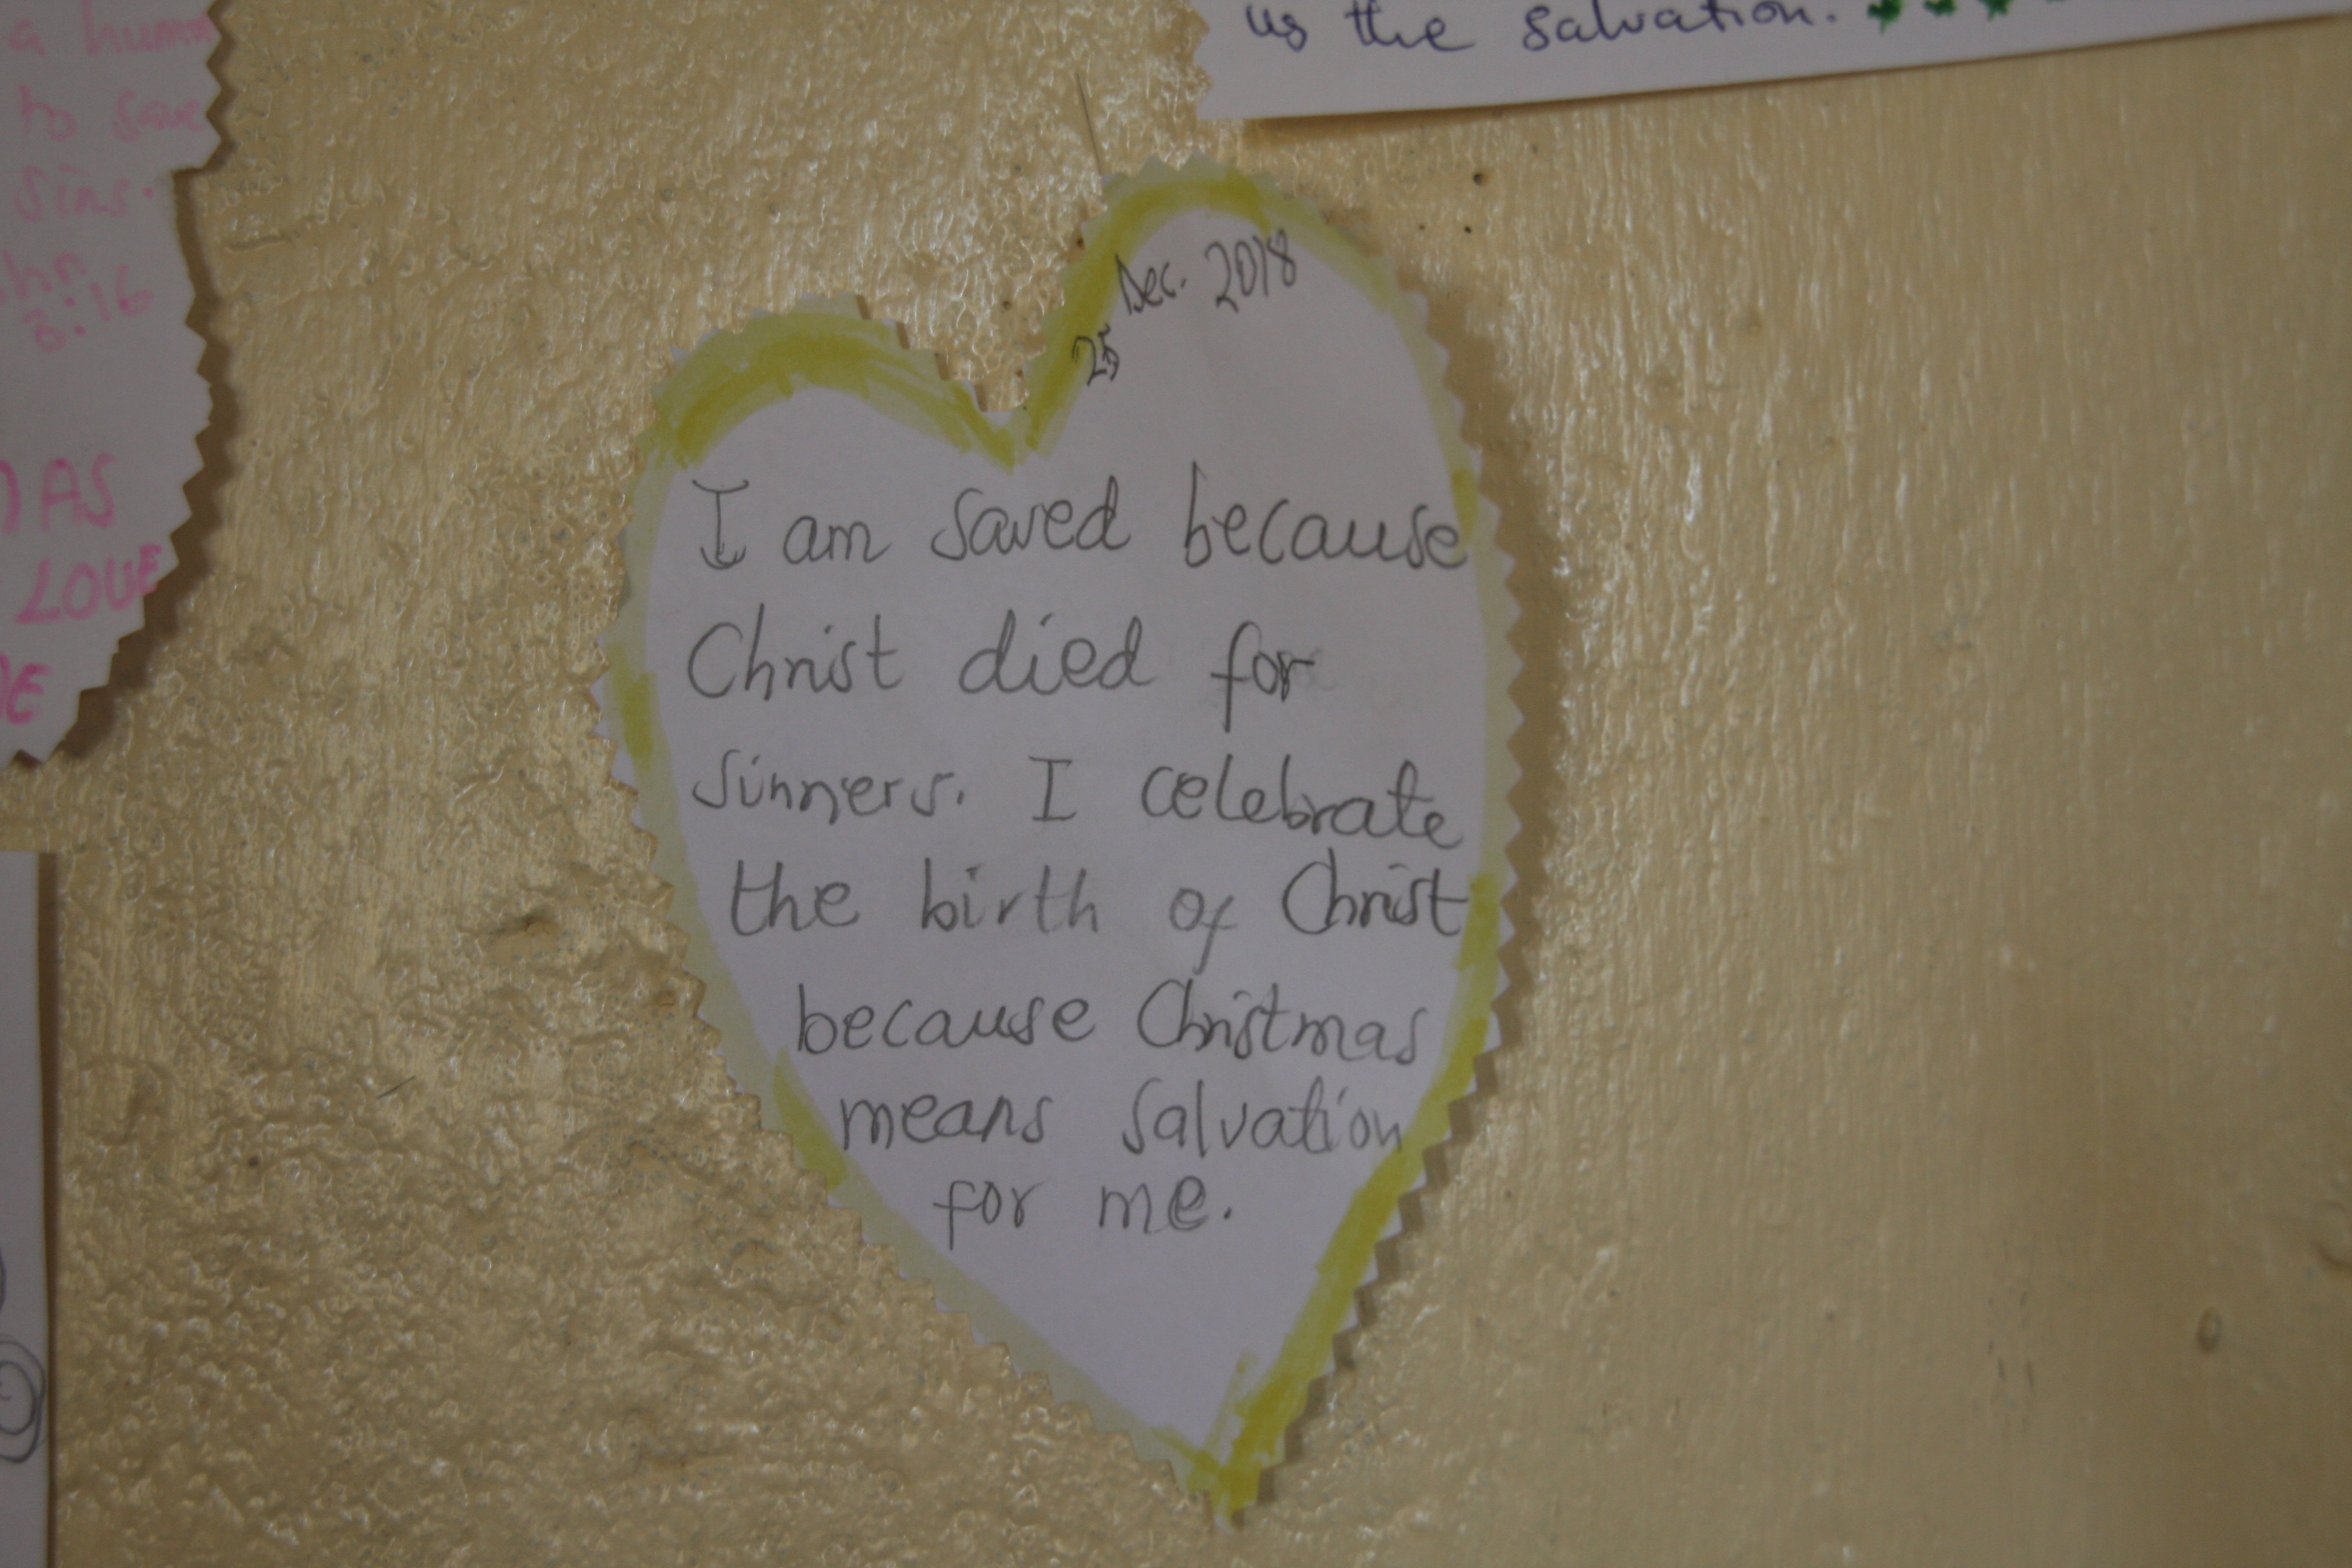 us the salvation.
a
to save
sins.
3:16
LOVE
25 Dec. 2018
I am saved because
Christ died for
sinners. I celebrate
the birth of Christ
because Christmas
means salvation
for me.